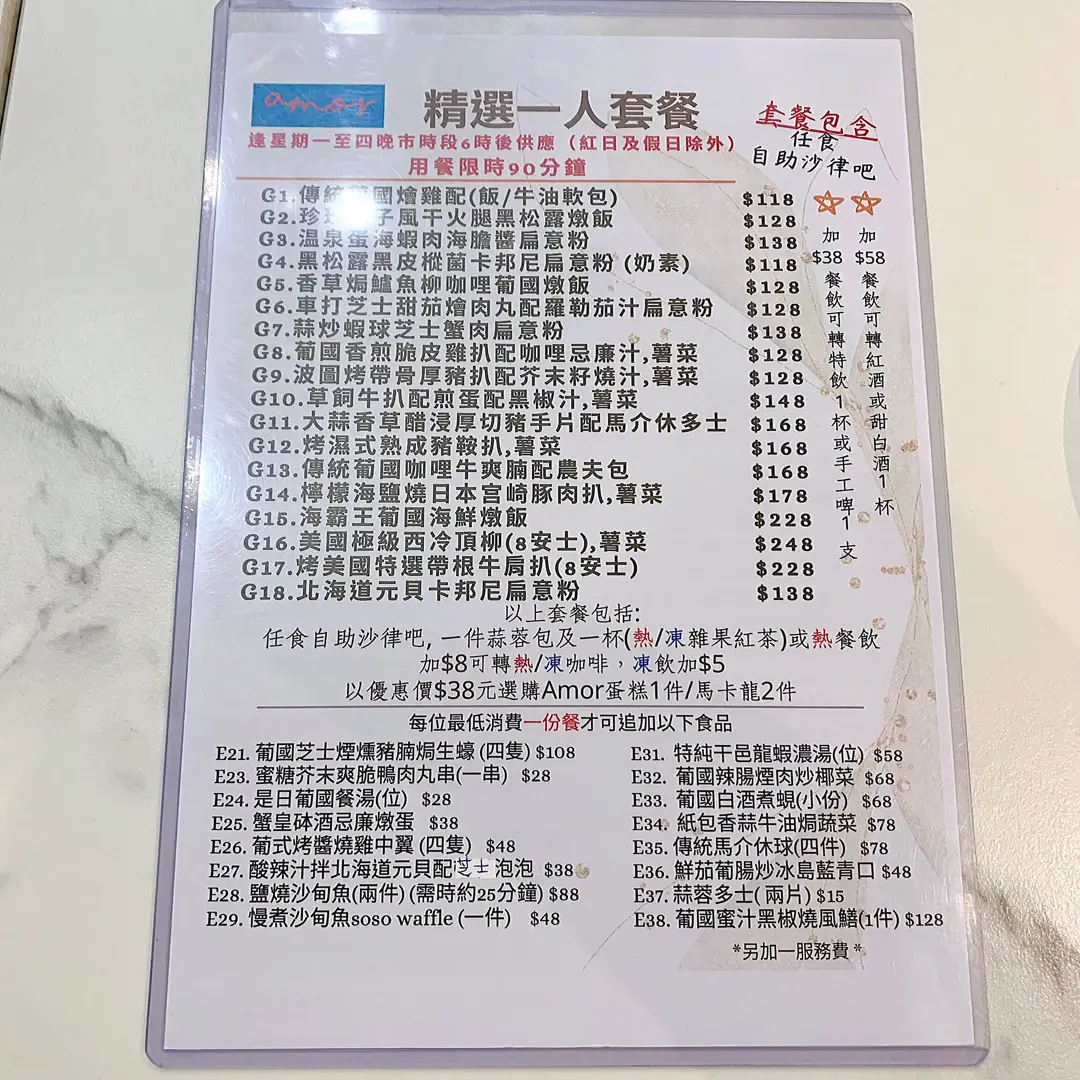 amor
精選一人套餐
逢星期一至四晚市時段6時後供應（紅日及假日除外）
用餐限時90分鐘
套餐包含
任食
自助沙律吧
G1.傳統葡國燴雞配(飯/牛油軟包) $118
G2.珍珠 子風干火腿黑松露燉飯 $128
G3.溫泉蛋海蝦肉海膽醬扁意粉 $138
G4.黑松露黑皮樅菌卡邦尼扁意粉 (奶素) $118
G5.香草焗鱸魚柳咖哩葡國燉飯 $128
G6.車打芝士甜茄燴肉丸配羅勒茄汁扁意粉 $128
G7.蒜炒蝦球芝士蟹肉扁意粉 $138
G8.葡國香煎脆皮雞扒配咖哩忌廉汁,薯菜 $128
G9.波圖烤帶骨厚豬扒配芥末籽燒汁,薯菜 $128
G10.草飼牛扒配煎蛋配黑椒汁,薯菜 $148
G11.大蒜香草醋浸厚切豬手片配馬介休多士 $168
G12.烤濕式熟成豬鞍扒,薯菜 $168
G13.傳統葡國咖哩牛爽腩配農夫包 $168
G14.檸檬海鹽燒日本宮崎豚肉扒,薯菜 $178
G15.海霸王葡國海鮮燉飯 $228
G16.美國極級西冷頂柳(8安士),薯菜 $248
G17.烤美國特選帶根牛肩扒(8安士) $228
G18.北海道元貝卡邦尼扁意粉 $138
加$38餐飲可轉特飲1杯或手工啤1支
加$58餐飲可轉紅酒或甜白酒1杯
以上套餐包括:
任食自助沙律吧, 一件蒜蓉包及一杯(熱/凍雜果紅茶)或熱餐飲
加$8可轉熱/凍咖啡，凍飲加$5
以優惠價$38元選購Amor蛋糕1件/馬卡龍2件
每位最低消費一份餐才可追加以下食品
E21. 葡國芝士煙燻豬腩焗生蠔 (四隻) $108
E23. 蜜糖芥末爽脆鴨肉丸串(一串) $28
E24. 是日葡國餐湯(位) $28
E25. 蟹皇砵酒忌廉燉蛋 $38
E26. 葡式烤醬燒雞中翼 (四隻) $48
E27. 酸辣汁拌北海道元貝配芝士泡泡 $38
E28. 鹽燒沙甸魚(兩件) (需時約25分鐘) $88
E29. 慢煮沙甸魚soso waffle (一件) $48
E31. 特純干邑龍蝦濃湯(位) $58
E32. 葡國辣腸煙肉炒椰菜 $68
E33. 葡國白酒煮蜆(小份) $68
E34. 紙包香蒜牛油焗蔬菜 $78
E35. 傳統馬介休球(四件) $78
E36. 鮮茄葡腸炒冰島藍青口 $48
E37. 蒜蓉多士( 兩片) $15
E38. 葡國蜜汁黑椒燒風鱔(1件) $128
*另加一服務費 *